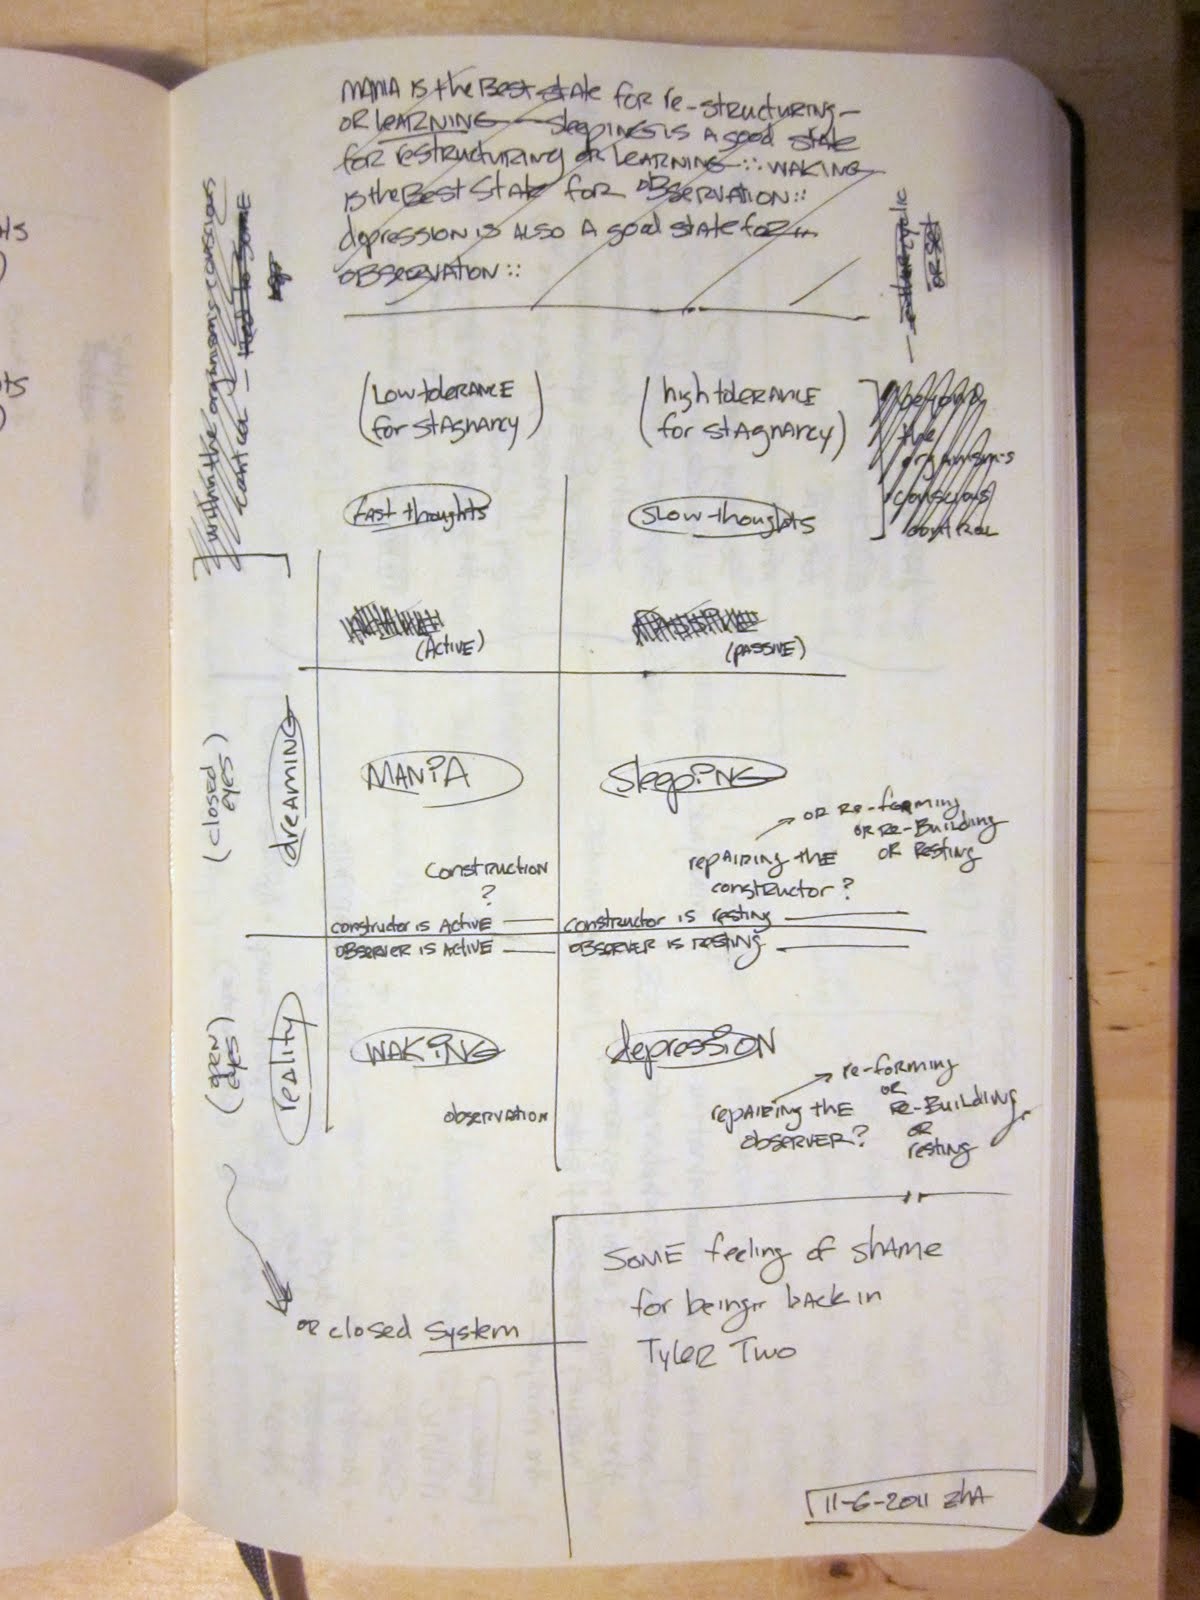 MANIA is the Best state for re-structuring –
OR LEARNING — sleeping is a good state
for restructuring or LEARNING ::: WAKING
is the Best State for OBSERVATION ::
depression is ALSO A good state for...
OBSERVATION ::
within the organisms conscious
control –
OR SET
(Low tolerance
for stagnancy)
(high tolerance
for stagnancy)
beyond
the
organism's
conscious
control
fast thoughts
slow thoughts
PASSIVE
(Active)
(PASSIVE)
(closed
eyes)
dreaming
MANIA
Sleeping
OR Re-forming
OR Re-Building
OR Resting
construction
?
repairing the
constructor?
constructor is Active
constructor is resting
OBSERVER is ACTIVE
OBSERVER is resting
(open
eyes)
reality
WAKING
depression
re-forming
OR
Re-Building
OR
resting
observation
repairing the
observer?
or closed system
SOME feeling of shame
for being.. back in
Tyler Two
11-6-2011 zha